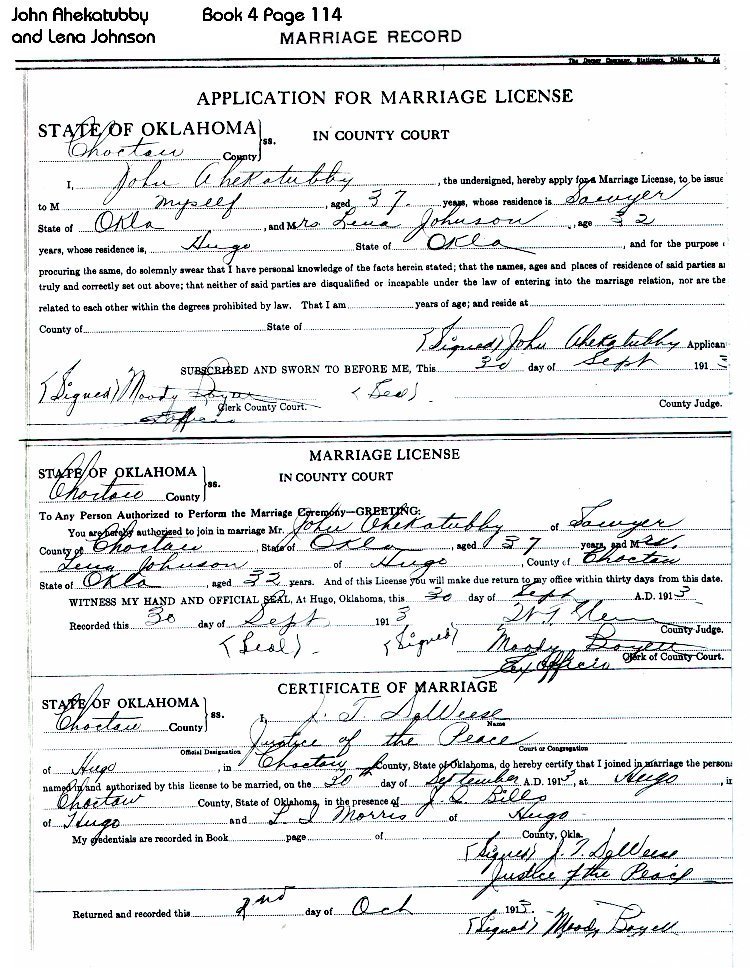 John Ahekatubby Book 4 Page 114
and Lena Johnson MARRIAGE RECORD
The Dorsey Company, Stationers, Dallas, Tex.
APPLICATION FOR MARRIAGE LICENSE
STATE OF OKLAHOMA } ss. IN COUNTY COURT
Choctaw County
I, John Ahekatubby, the undersigned, hereby apply for a Marriage License, to be issue
to M myself, aged 37. years, whose residence is Sawyer
State of Okla, and Mrs Lena Johnson, age 32
years, whose residence is, Hugo State of Okla, and for the purpose
procuring the same, do solemnly swear that I have personal knowledge of the facts herein stated; that the names, ages and places of residence of said parties a
truly and correctly set out above; that neither of said parties are disqualified or incapable under the law of entering into the marriage relation, nor are the
related to each other within the degrees prohibited by law. That I am years of age; and reside at
County of State of
(Signed) John Ahekatubby Applican
SUBSCRIBED AND SWORN TO BEFORE ME, This 30 day of Sept 1913
(Signed) Moody (Seal)
Clerk County Court. County Judge.
MARRIAGE LICENSE
STATE OF OKLAHOMA } ss. IN COUNTY COURT
Choctaw County
To Any Person Authorized to Perform the Marriage Ceremony—GREETING:
You are hereby authorized to join in marriage Mr. John Ahekatubby of Sawyer
County of Choctaw, State of Okla aged 37 years, and Mrs.
Lena Johnson of Hugo, County of Choctaw
State of Okla, aged 32 years. And of this License you will make due return to my office within thirty days from this date.
WITNESS MY HAND AND OFFICIAL SEAL, At Hugo, Oklahoma, this 30 day of Sept A.D. 1913
Recorded this 30 day of Sept 1913 W. T. Glenn
County Judge.
(Seal). (Signed) Moody Boyett
Ex Officio Clerk of County Court.
CERTIFICATE OF MARRIAGE
STATE OF OKLAHOMA } ss. I, J. T. DeWeese
Choctaw County Name
Justice of the Peace
Official Designation Court or Congregation
of Hugo, in Choctaw County, State of Oklahoma, do hereby certify that I joined in marriage the person
named in and authorized by this license to be married, on the 30th day of September A.D. 1913, at Hugo, i
Choctaw County, State of Oklahoma, in the presence of J. L. Bills
of Hugo and L I Morris of Hugo.
My credentials are recorded in Book page of County, Okla.
(Signed) J. T. DeWeese
Justice of the Peace
Returned and recorded this 2nd day of Och 1913
(Signed) Moody Boyett